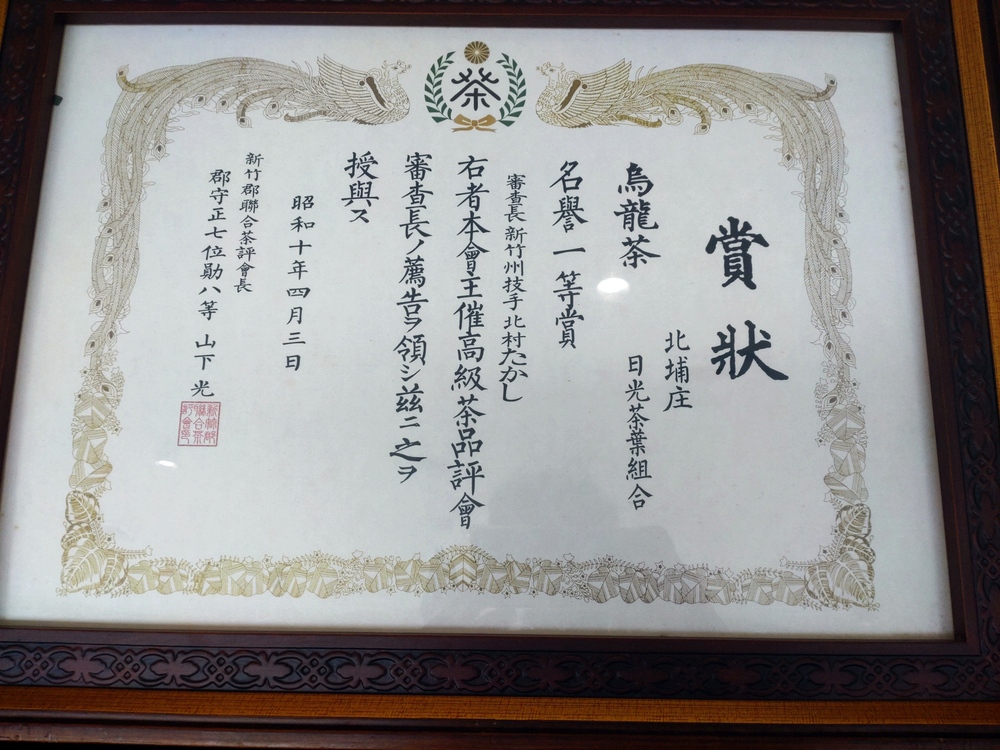 茶
賞狀
北埔庄
日光茶葉組合
烏龍茶
名譽一等賞
審查長 新竹州技手 北村たかし
右者本會主催高級茶品評會
審查長ノ薦告ヲ領シ茲ニ之ヲ
授與ス
昭和十年四月三日
新竹郡聯合茶評會長
郡守正七位勛八等 山下 光